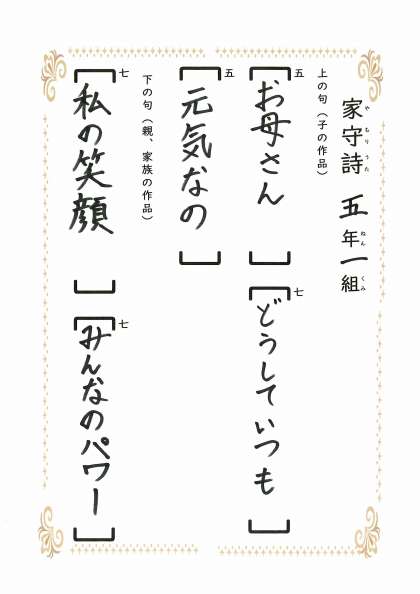 家守詩 五年一組
やもりうた ねん くみ
上の句(子の作品)
五
お母さん
七
どうしていつも
五
元気なの
下の句(親、家族の作品)
七
私の笑顔
七
みんなのパワー